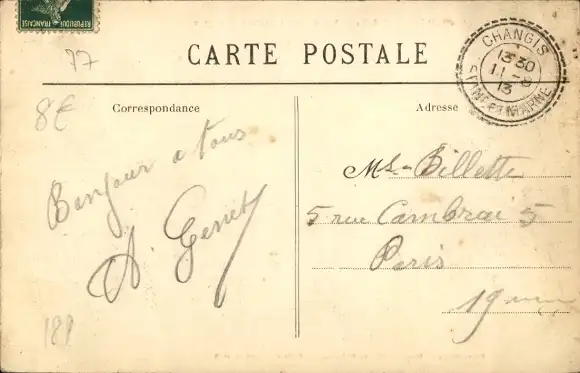 REPUBLIQUE FRANÇAISE
77
CARTE POSTALE
CHANGIS
13 30
11 - 8
13
SEINE ET MARNE
8€
Correspondance
Adresse
Bonjour a tous
A. Genet
Ms- Billette
5 rue Cambrai 5
Paris
19eme
188